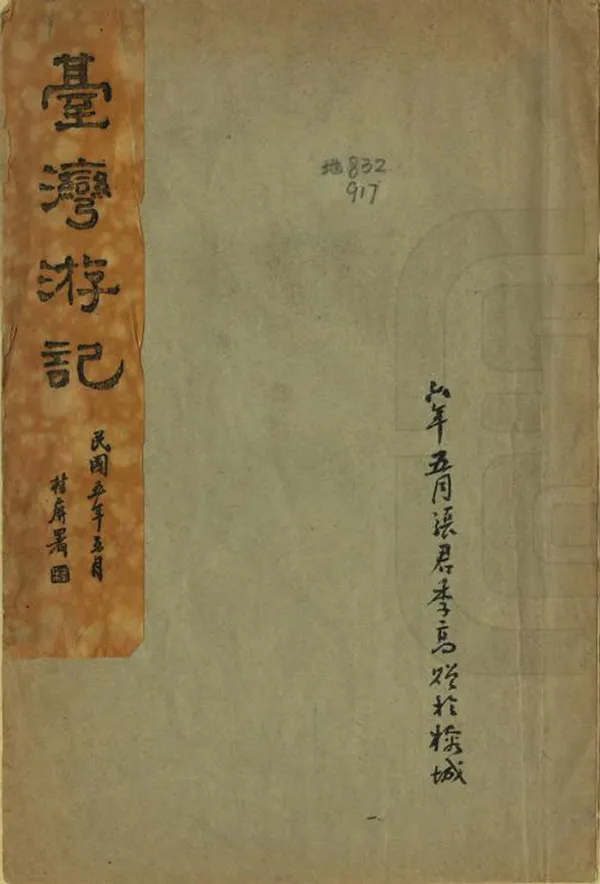 臺灣游記
民國五年五月
署
地832
917
六年五月張君季高贈於榕城